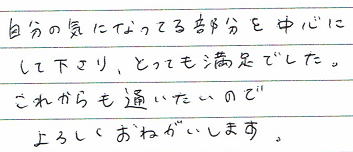 自分の気になってる部分を中心に
して下さり、とっても満足でした。
これからも通いたいので
よろしくおねがいします。